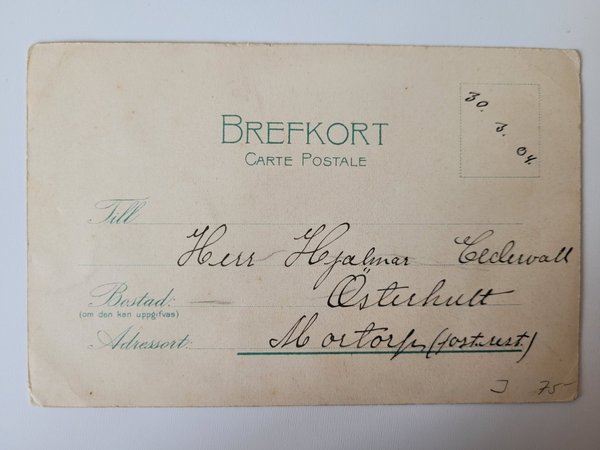 BREFKORT
CARTE POSTALE
30. 3. 04.
Till
Herr Hjalmar Cederwall
Österhult
Bostad:
(om den kan uppgifvas)
Adressort: Mortorp (post.rest.)
J 75-